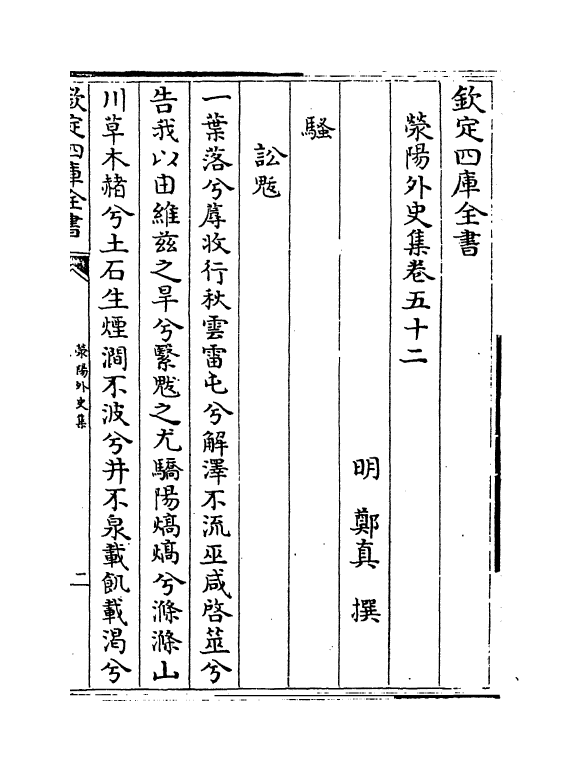 欽定四庫全書
滎陽外史集卷五十二
明 鄭真 撰
騷
訟魃
一葉落兮蓐收行秋雲雷屯兮解澤不流巫咸啓筮兮
告我以由維兹之旱兮繄魃之尤驕陽熇熇兮滌滌山
川草木赭兮土石生煙澗不波兮井不泉載飢載渴兮
欽定四庫全書
滎陽外史集
二